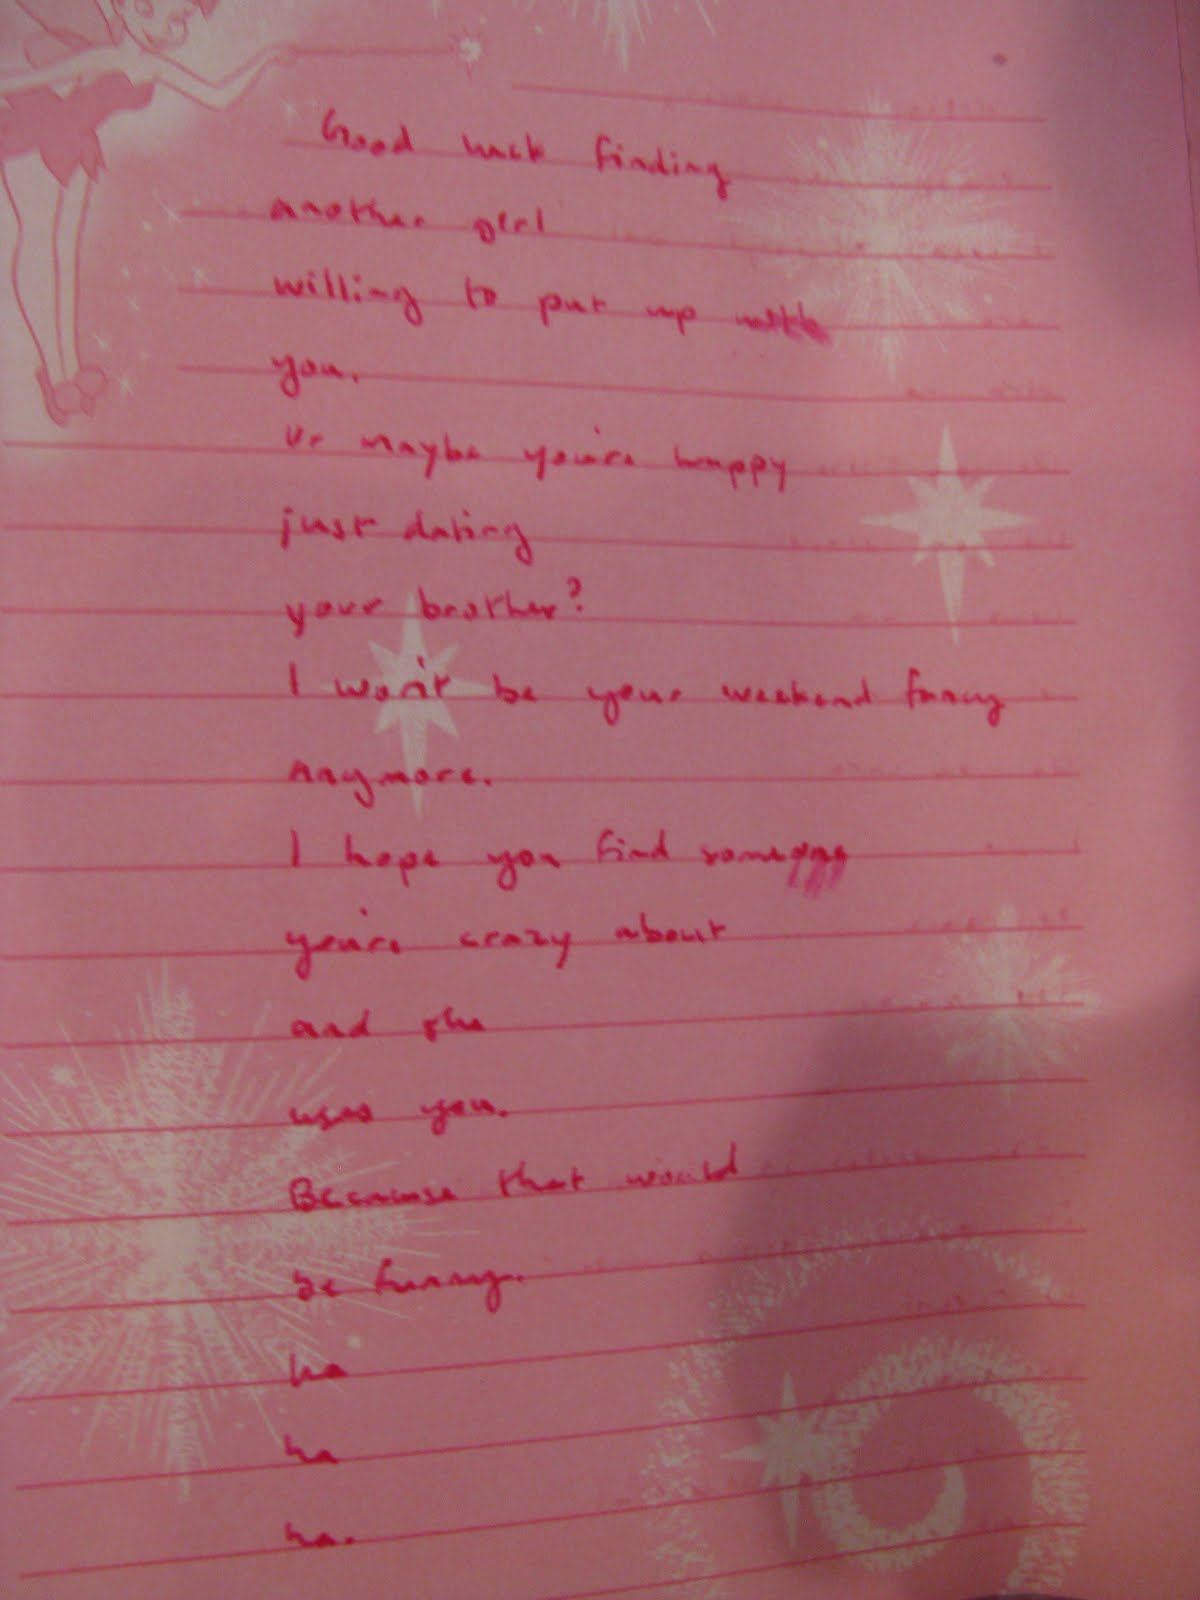 Good luck finding
another girl
willing to put up with
you.
Or maybe you're happy
just dating
your brother?
I won't be your weekend fancy
anymore.
I hope you find someone
you're crazy about
and she
uses you.
Because that would
be funny.
ha
ha
ha.